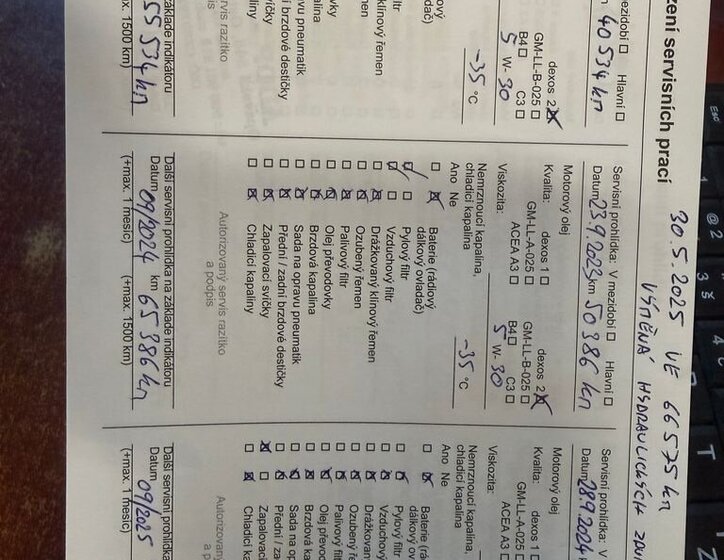 zení servisních prací
30.5.2025 VE 66 575 km
VÝMĚNA HYDRAULICKÝCH
mezidobí Hlavní
40 534 km
dexos 2
GM-LL-B-025
B4 C3
5 W-30
-35 °C
ový
dač)
ltr
klínový řemen
ovky
alina
vu pneumatik
brzdové destičky
víčky
palina
rvis razítko
pis
základe indikátoru
55 534 km
max. 1500 km)
Servisní prohlídka: V mezidobí Hlavní
Datum 23.9.2023 km 50 386 km
Motorový olej
Kvalita: dexos 1 dexos 2
GM-LL-A-025 GM-LL-B-025
ACEA A3 B4 C3
Viskozita: 5 W-30
Nemrznoucí kapalina,
chladicí kapalina -35 °C
Ano Ne
Baterie (rádiový
dálkový ovladač)
Pylový filtr
Vzduchový filtr
Drážkovaný klínový řemen
Ozubený řemen
Palivový filtr
Olej převodovky
Brzdová kapalina
Sada na opravu pneumatik
Přední / zadní brzdové destičky
Zapalovací svíčky
Chladicí kapaliny
Autorizovaný servis razítko
a podpis
Další servisní prohlídka na základe indikátoru
Datum 09/2024 km 65 386 km
(+max. 1 mesic) (+max. 1500 km)
Servisní prohlídka: V
Datum 28.9.2024
Motorový olej
Kvalita: dexos 1
GM-LL-A-025
ACEA A3
Viskozita:
Nemrznoucí kapalina,
chladicí kapalina
Ano Ne
Baterie (rádiový
dálkový ov
Pylový filtr
Vzduchový
Drážkovan
Ozubený ře
Palivový filtr
Olej převod
Brzdová ka
Sada na op
Přední / za
Zapalovac
Chladicí ka
Autorizovaný
a p
Další servisní prohlídka
Datum 09/2025
(+max. 1 mesic)